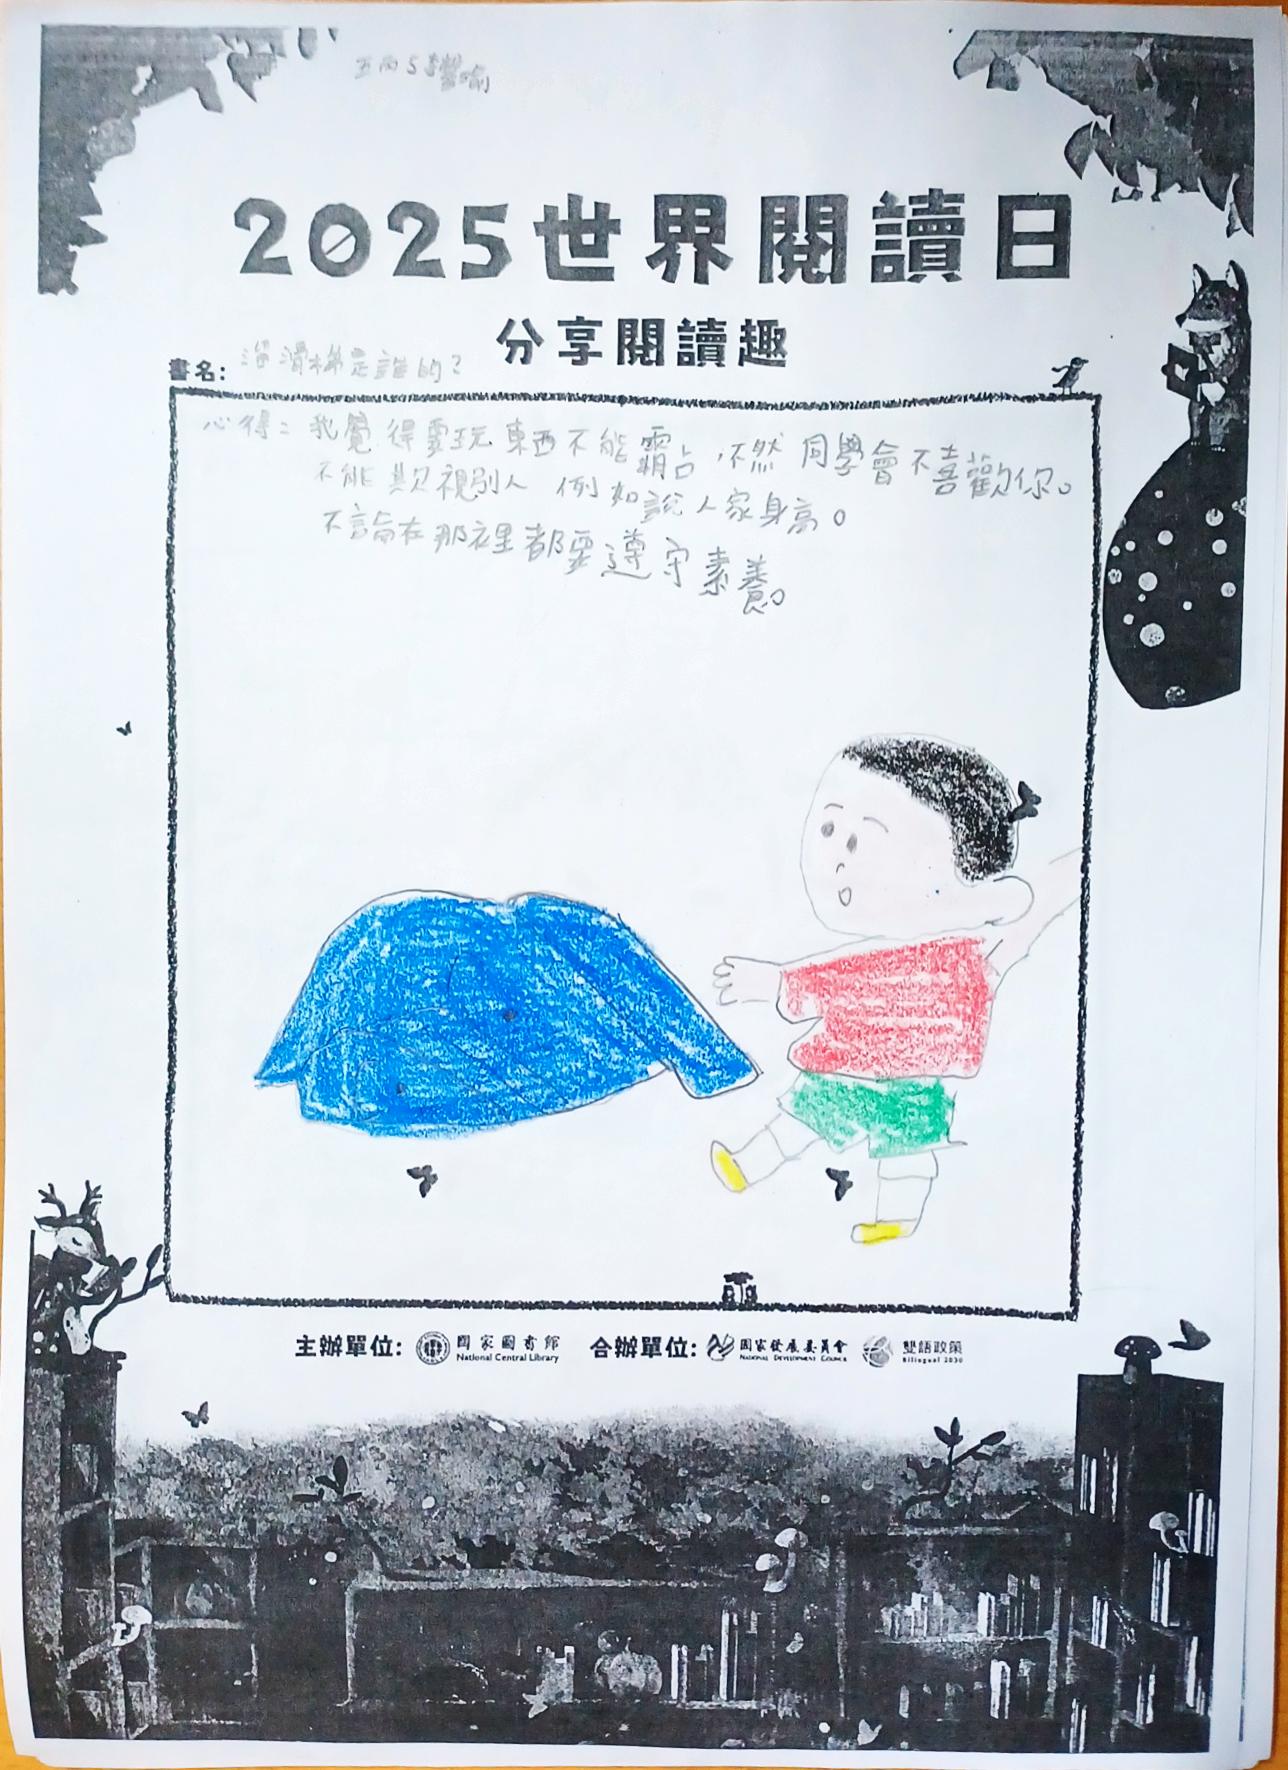 五丙5李蠻喻
2025世界閱讀日
分享閱讀趣
書名:溜滑梯是誰的?
心得:我覺得要玩東西不能霸占,不然同學會不喜歡你。
不能欺視別人 例如說人家身高。
不論在那裡都要遵守素養。
主辦單位: 國家圖書館 National Central Library 合辦單位: 國家發展委員會 National Development Council 雙語政策 Bilingual 2030